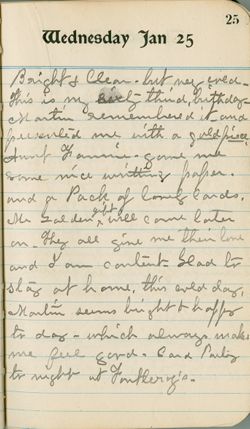 25
Wednesday Jan 25
Bright & Clear - but very cold -
This is my sixty third, birthday
Martin remembered it - and
presented me with a gold piece
Aunt Fannie - gave me
some nice writing paper.
and a Pack of Cards.
Mr gift will come later
on - They all give me their love
and I am content & glad to
stay at home, this cold day,
Martin seems bright & happy
to day - which always makes
me feel good - Card Party
to night at